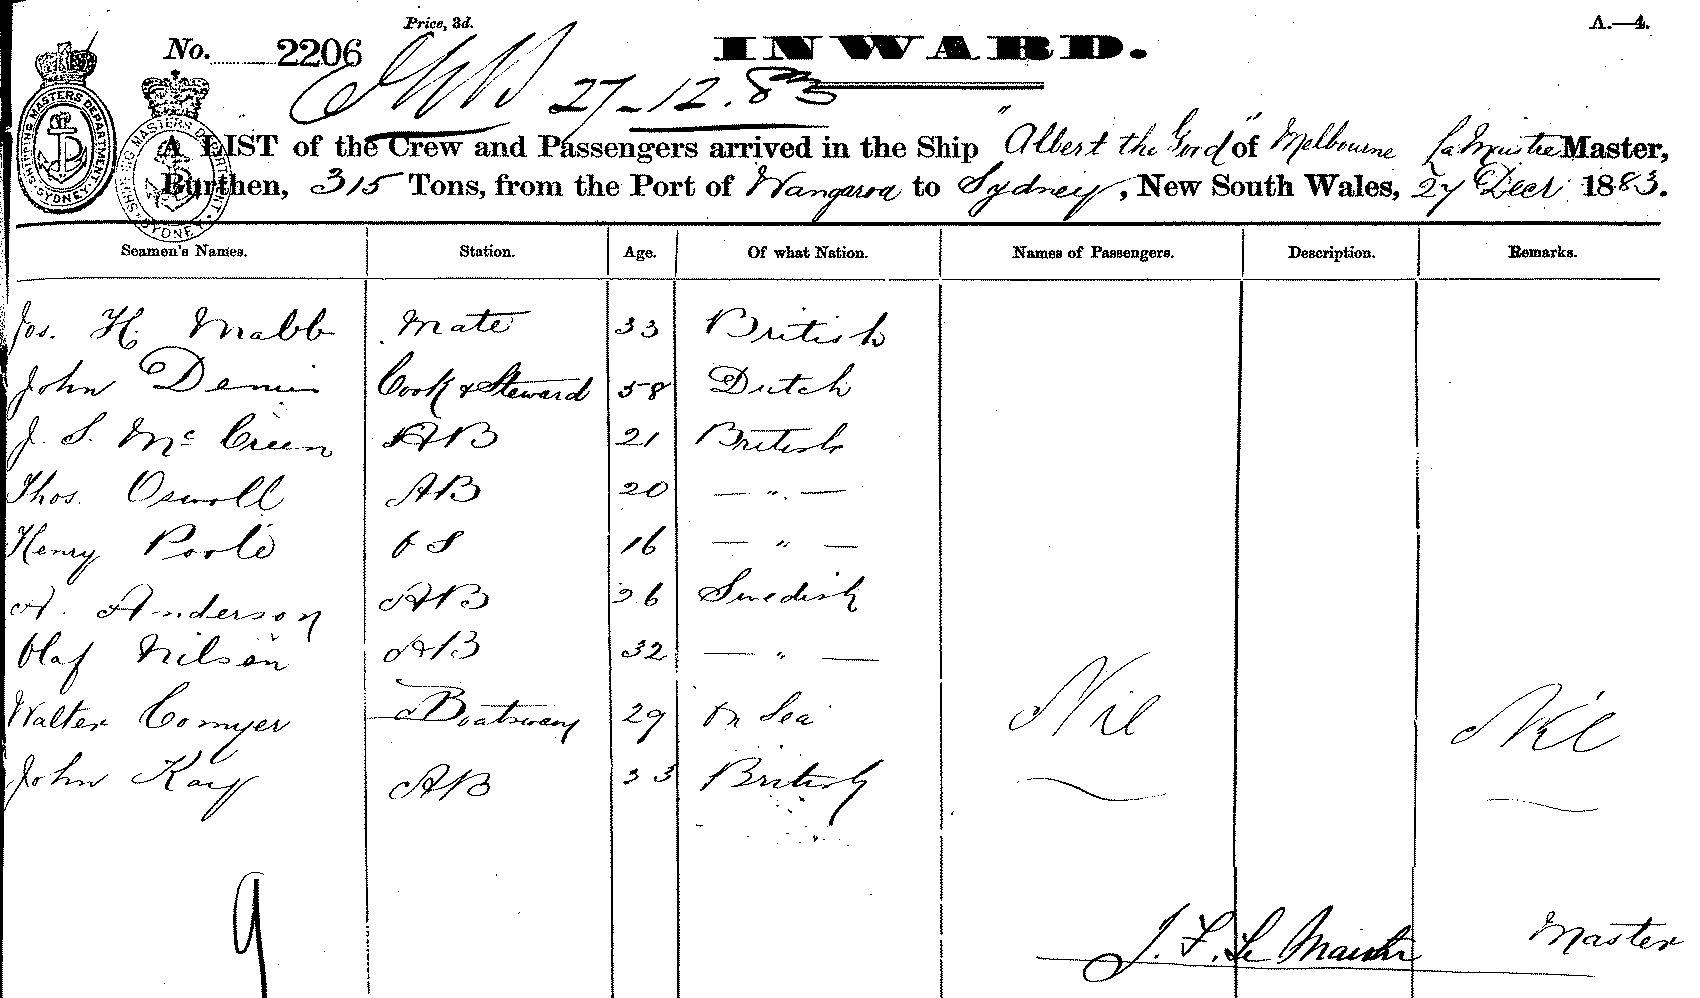 Price, 3d.
A.—4.
No. 2206
INWARD.
27-12.83
SHIPPING MASTERS DEPARTMENT SYDNEY
SHIPPING MASTERS DEPARTMENT SYDNEY
A LIST of the Crew and Passengers arrived in the Ship "Albert the Good" of Melbourne Le Maistre Master,
Burthen, 315 Tons, from the Port of Wangaroa to Sydney, New South Wales, 27 Decr 1883.
Seamen's Names. Station. Age. Of what Nation. Names of Passengers. Description. Remarks.
Jos. H. Mabb Mate 33 British
John Cook & Steward 58 Dutch
J. S. Mc Creen AB 21 British
Thos. Oswoll AB 20 — " —
Henry Poole OS 16 — " —
A. Anderson AB 26 Swedish
Olaf Nilsen AB 32 — " —
Walter Comyer Boatswain 29 On Sea Nil Nil
John Kay AB 33 British
9
J. F. Le Maistre Master